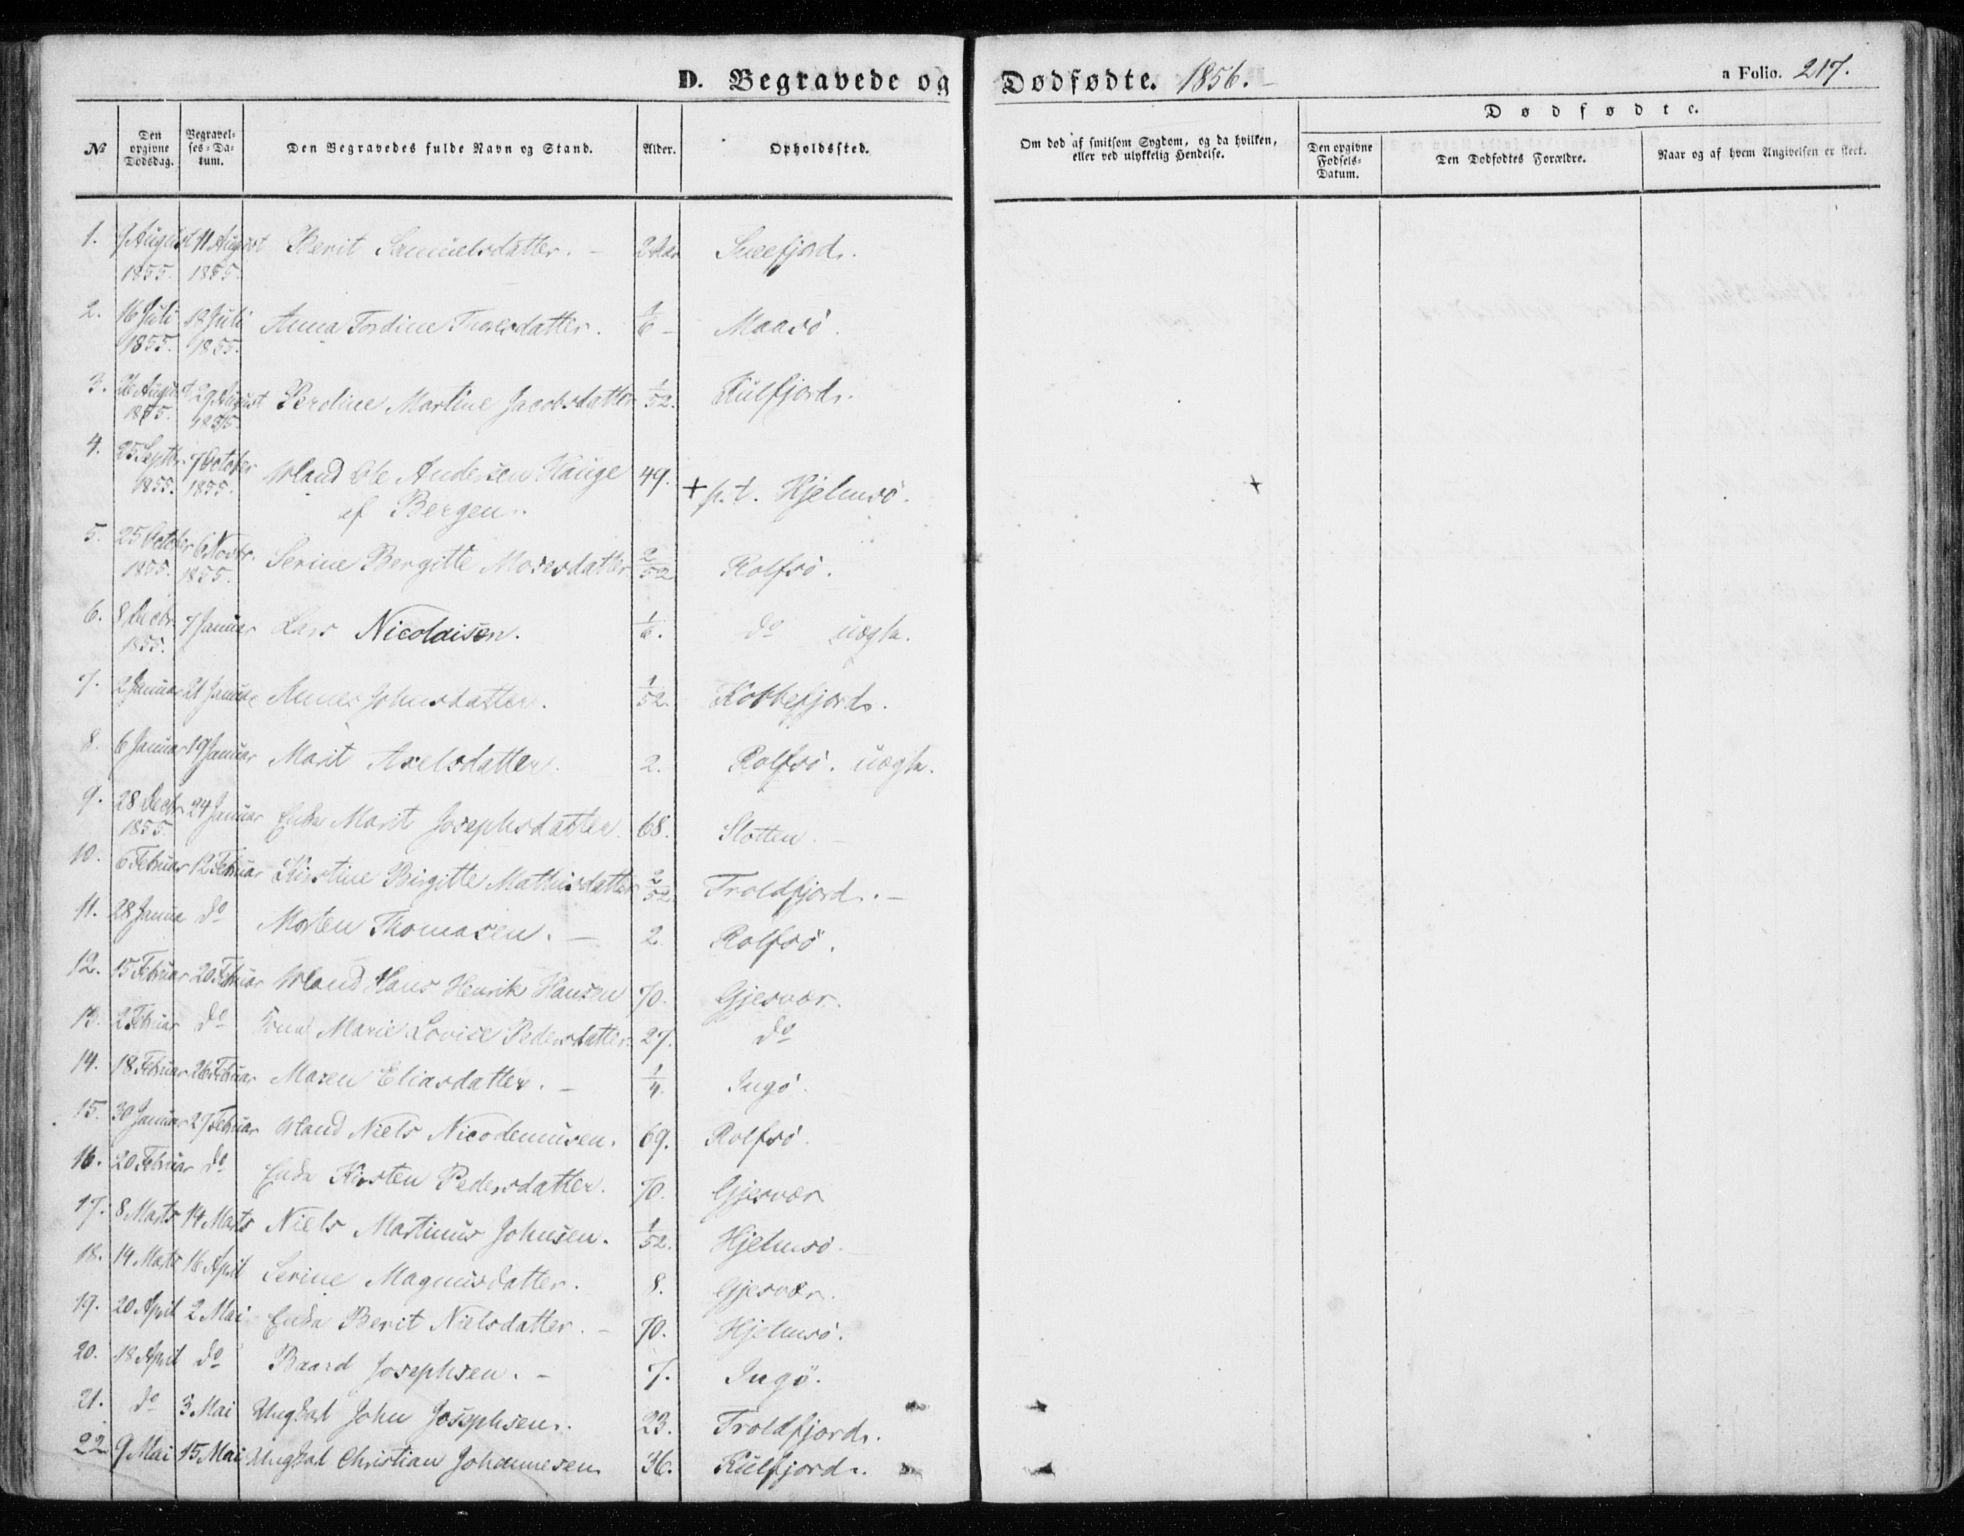 D. Begravede og Dødfødte. 1856.
a Folio. 217.
Dødfødte.
No
Den opgivne Dødsdag.
Begravelses-Datum.
Den Begravedes fulde Navn og Stand.
Alder.
Opholdssted.
Om død af smitsom Sygdom, og da hvilken, eller ved ulykkelig Hendelse.
Den opgivne Fødsels-Datum.
Den Dødfødtes Forældre.
Naar og af hvem Angivelsen er skeet.
1. 9 August 1855. 11 August 1855. Berit Samuelsdatter. 2 Aar Sneefjord.
2. 16 Juli 1855. 18 Juli 1855. Anna Tordine Thoresdatter. 1/6 Maasö.
3. 26 August 1855. 29 August 1855. Peroline Martine Jacobsdatter 1/52. Kulfjord.
4. 25 Septbr. 1855. 7 October 1855. Mand Ole Andersen Hauge 49. + p.t. Hjelmsö. +
af Bergen.
5. 25 October 1855. 6 Novbr. 1855. Serine Bergitte Mosesdatter 2/52 Rolfsö.
6. 8 Decbr. 1855. 7 Januar Lars Nicolaisen. 1/6. do uægte.
7. 2 Januar 21 Januar Anne Johnsdatter. 1/52. Kobbefjord.
8. 6 Januar 19 Januar Marit Axelsdatter. 2. Rolfsö. uægte.
9. 28 Decbr. 1855. 24 Januar Enke Marit Josephsdatter. 68. Slotten.
10. 6 Februar 12 Februar Kirstine Birgitte Mathisdatter 2/52. Troldfjord.
11. 28 Januar do Morten Thomasen. 2. Rolfsö.
12. 15 Februar 20 Februar Mand Hans Henrik Hansen 70. Gjesvær.
13. 2 Februar do Kone Marie Lovise Pedersdatter. 27. do
14. 18 Februar 26 Februar Maren Eliasdatter. 1/4. Ingö.
15. 30 Januar 27 Februar Mand Niels Nicodemusen. 69. Rolfsö.
16. 20 Februar do Enke Kirsten Pedersdatter. 70. Gjesvær
17. 8 Marts 14 Marts Niels Martinus Johnsen. 1/52. Hjelmsö.
18. 14 Marts 16 April Serine Magnusdatter. 8. Gjesvær.
19. 20 April 2 Mai Enke Berit Nielsdatter. 70. Hjelmsö.
20. 18 April do Baard Josephsen. 7. Ingö.
21. do 3 Mai Ungkarl John Josephsen. 23. Troldfjord.
22 9 Mai 15 Mai Ungkarl Christian Johannesen 36. Kulfjord.